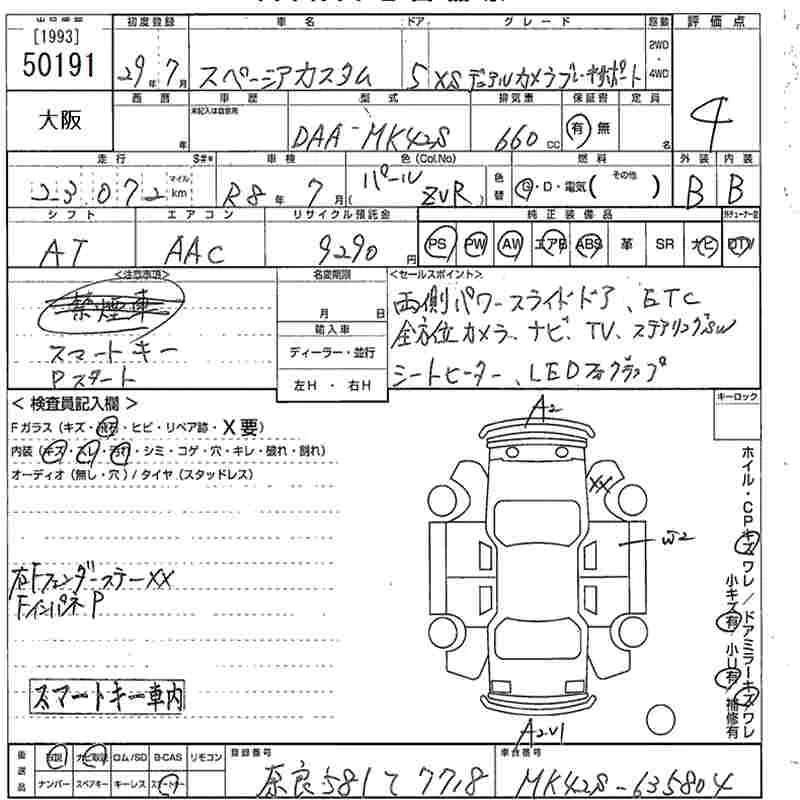 [1993]
50191
初度登録 車名 ドア グレード 駆動 評価点
29年 7月 スペーシアカスタム 5 XSデュアルカメラブレーキサポート 2WD・4WD 4
大阪
西暦 車歴 型式 排気量 保証書 定員
未記入は自家用
年 DAA-MK42S 660cc 有 無 名
走行 S#* 車検 色(Col.No) 燃料 外装 内装
23,072 マイル km R8年 7月 (パール ZVR) 色替 G・D・電気( その他 ) B B
シフト エアコン リサイクル預託金 純正装備品
AT AAC 9290円 PS PW AW エアB ABS 革 SR ナビ TV
<注意事項> 名変期限 <セールスポイント>
禁煙車
スマートキー
Pスタート
月 日
輸入車
ディーラー・並行
左H・右H
両側パワースライドドア、ETC
全方位カメラ、ナビ、TV、ステアリングSW
シートヒーター、LEDフォグランプ
<検査員記入欄>
キーロック
Fガラス(キズ・飛石・ヒビ・リペア跡・X要)
内装(キズ・スレ・汚れ・シミ・コゲ・穴・キレ・破れ・割れ)
オーディオ(無し・穴)/タイヤ(スタッドレス)
A2
XX
W2
A2U1
右FフェンダーステーXX
FインパネP
スマートキー車内
ホイル・CPキズワレ/ドアミラーキズワレ
小キズ有 小U有 補修有
後選品
取説 ナビ取説 ロム/SD B-CAS リモコン
ナンバー スペアキー キーレス スマートキー
登録番号 車台番号
奈良581て7718 MK42S-635804